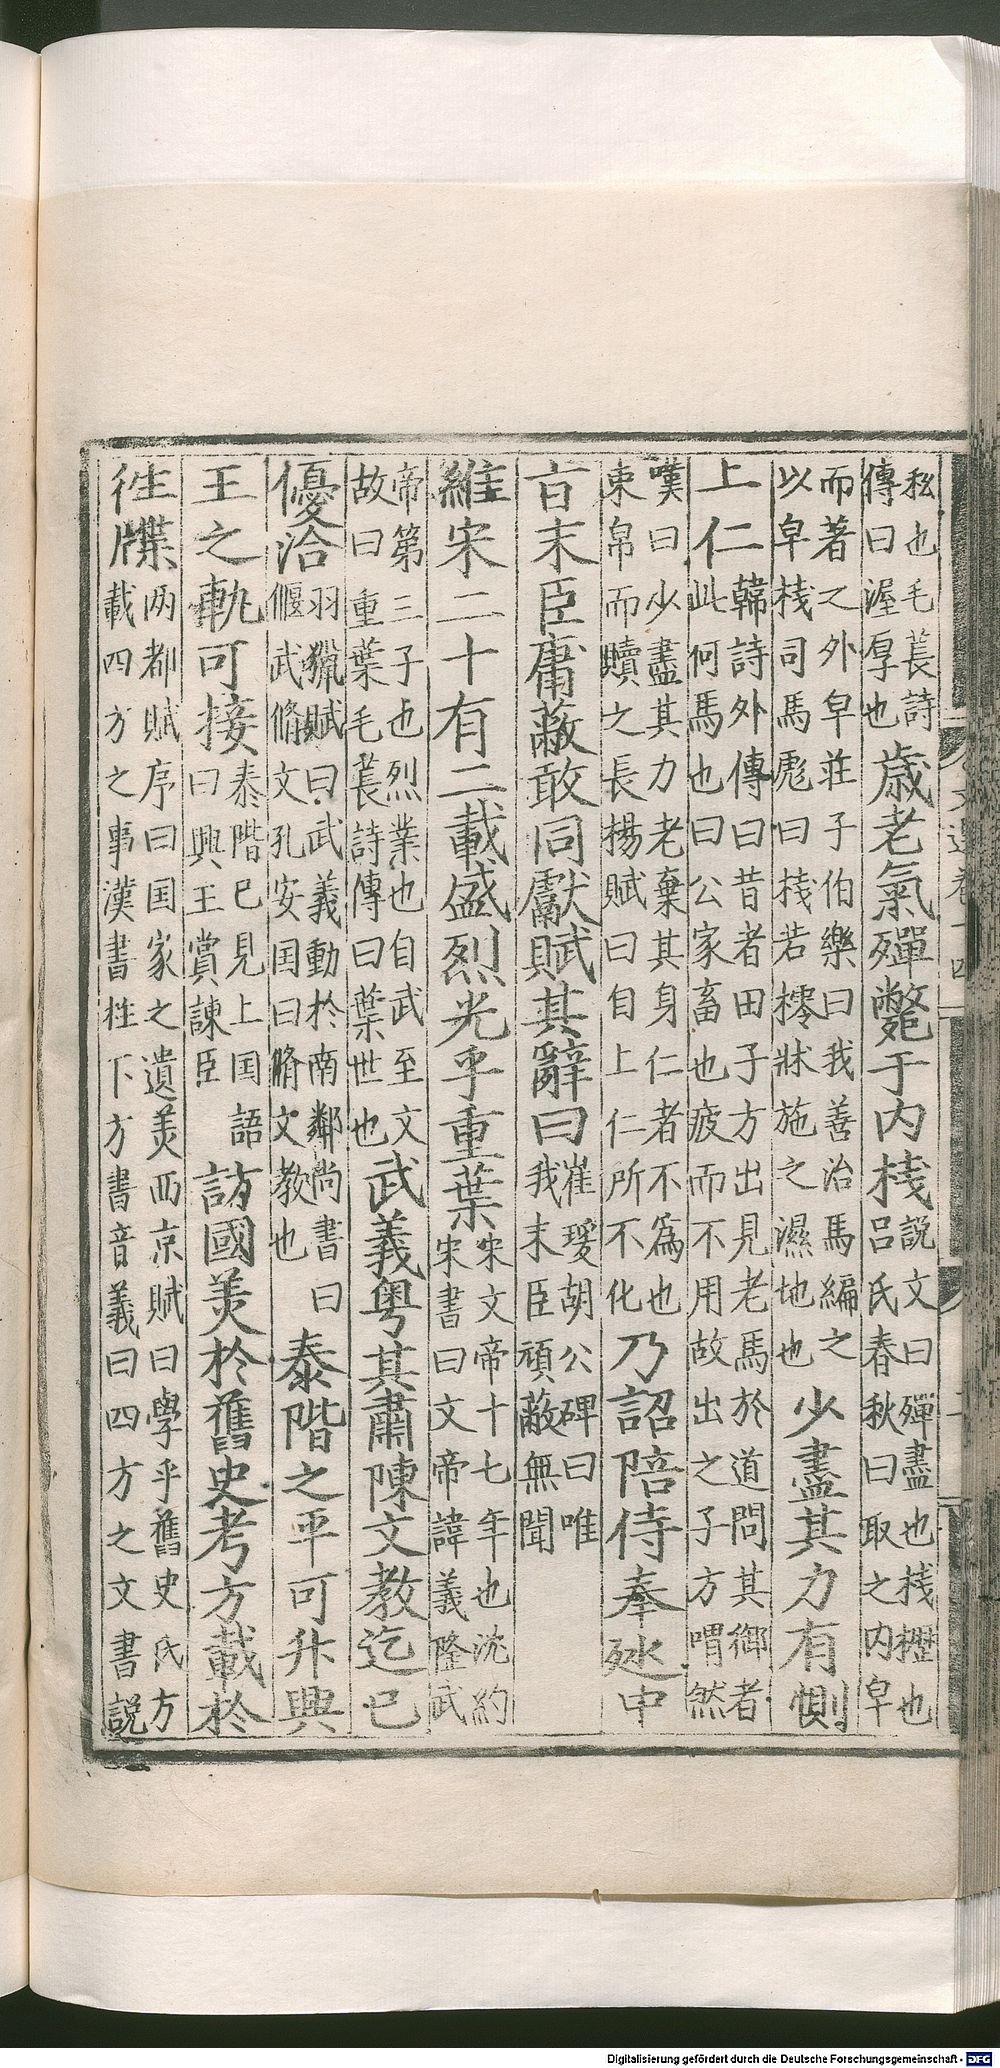 私也毛萇詩
傳曰渥厚也
歳老氣殫斃于内栈
説文曰殫盡也栈㭼也
吕氏春秋曰取之内皁
而著之外皁莊子伯樂曰我善治馬編之
以皁栈司馬彪曰栈若櫺牀施之濕地也
少盡其力有惻
上仁
韓詩外傳曰昔者田子方出見老馬於道問其御者
此何馬也曰公家畜也疲而不用故出之子方喟然
嘆曰少盡其力老棄其身仁者不為也
束帛而贖之長楊賦曰自上仁所不化
乃詔陪侍奉述中
㫖末臣庸蔽敢同獻賦其辭曰
崔瑗胡公碑曰唯
我末臣頑蔽無聞
維宋二十有二載盛烈光乎重葉
宋文帝十七年也沈約
宋書曰文帝諱義隆武
帝第三子也烈業也自武至文
故曰重葉毛萇詩傳曰葉世也
武義粤其肅陳文教迄已
優洽
羽獵賦曰武義動於南鄰尚書曰
偃武脩文孔安国曰脩文教也
泰階之平可升興
王之軌可接
泰階已見上国語
曰興王賞諌臣
訪國羙於舊史考方載於
徃牒
两都賦序曰国家之遺羙西京賦曰學乎舊史氏方
載四方之事漢書柱下方書音義曰四方之文書説
文選卷十四
Digitalisierung gefördert durch die Deutsche Forschungsgemeinschaft - DFG